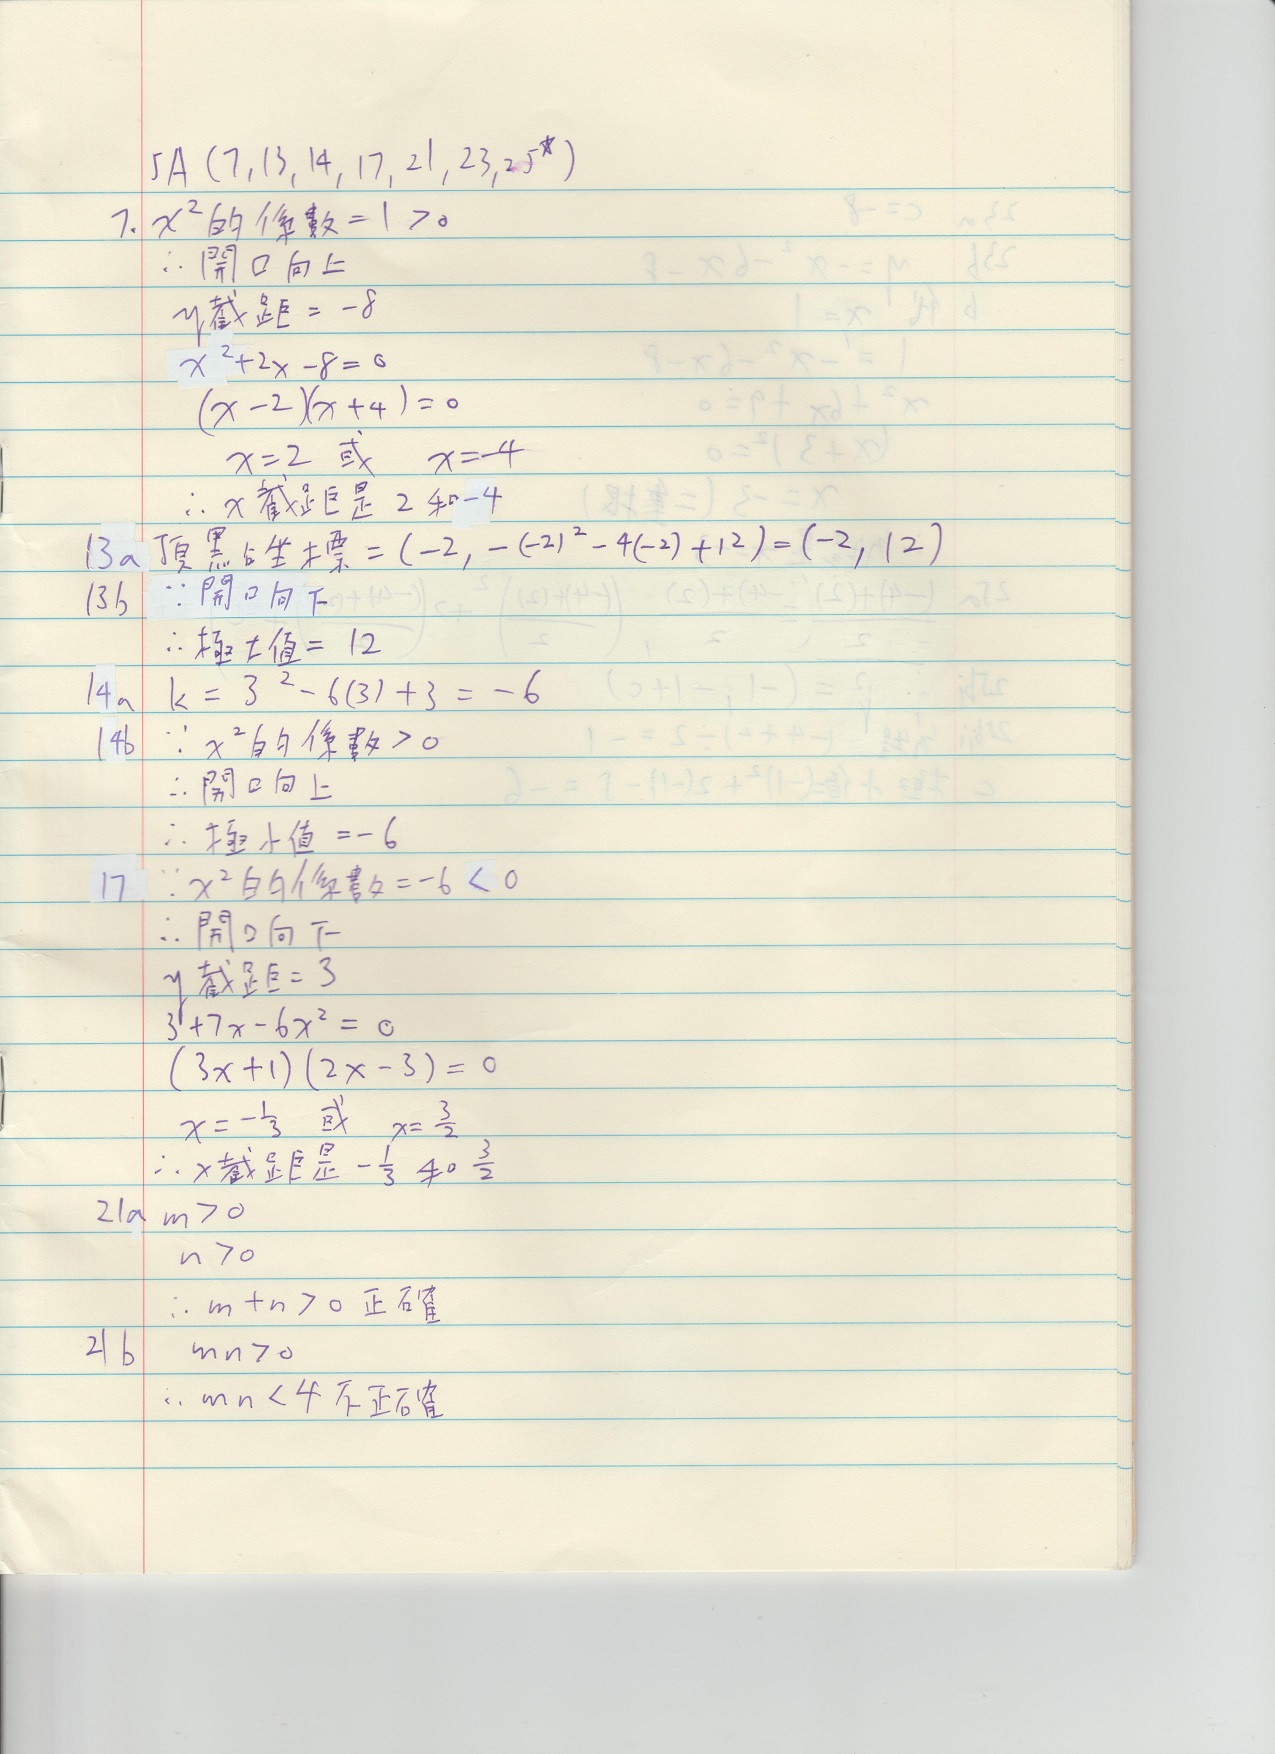 5A (7,13,14,17,21,23,25*)
7. x²的係數=1>0
∴開口向上
y截距=-8
x²+2x-8=0
(x-2)(x+4)=0
x=2 或 x=-4
∴x截距是2和-4
13a 頂點坐標=(-2,-(-2)²-4(-2)+12)=(-2,12)
13b ∵開口向下
∴極大值=12
14a k=3²-6(3)+3=-6
14b ∵x²的係數>0
∴開口向上
∴極小值=-6
17 ∵x²的係數=-6<0
∴開口向下
y截距=3
3+7x-6x²=0
(3x+1)(2x-3)=0
x=-1/3 或 x=3/2
∴x截距是-1/3和3/2
21a m>0
n>0
∴m+n>0正確
21b mn>0
∴mn<4不正確